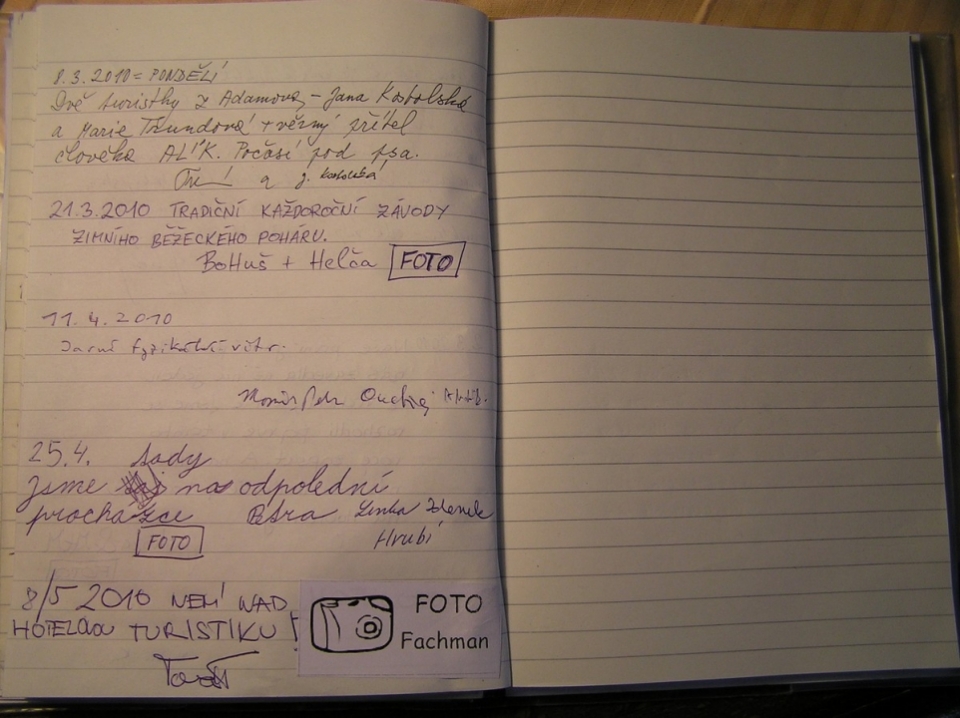 8.3.2010 = PONDĚLÍ
Dvě turistky z Adamova, – Jana Kostolská
a Marie Trundová + věrný přítel
člověka ALÍK. Počasí pod psa.
a J. Kostolská
21.3.2010 TRADIČNÍ KAŽDOROČNÍ ZÁVODY
ZIMNÍHO BĚŽECKÉHO POHÁRU.
BoHuš + Helča FOTO
11.4.2010
Jarní
Ondřej
25.4. tady
jsme na odpolední
procházce Petra Lenka Zdenek
Hrubí
FOTO
8/5 2010 NENÍ NAD
HOTELOVOU TURISTIKU!
FOTO
Fachman